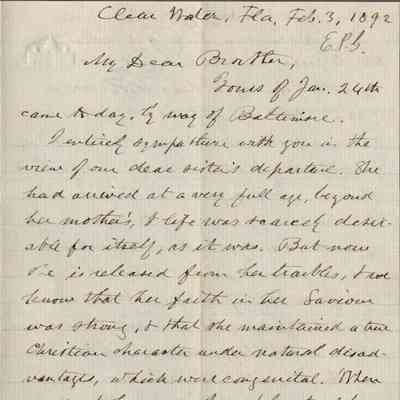 Clear Water, Fla, Feb. 3, 1892
E.P.S.
My Dear Brother,
Yours of Jan. 24th
came to day, by way of Baltimore.
I entirely sympathize with you in the
view of our dear sister's departure. She
had arrived at a very full age, beyond
her mother's, & life was scarcely desir-
able for itself, as it was. But now
she is released from her troubles, & we
know that her faith in her Saviour
was strong, & that she maintained a true
Christian character under natural disad-
vantages, which were congenital. When